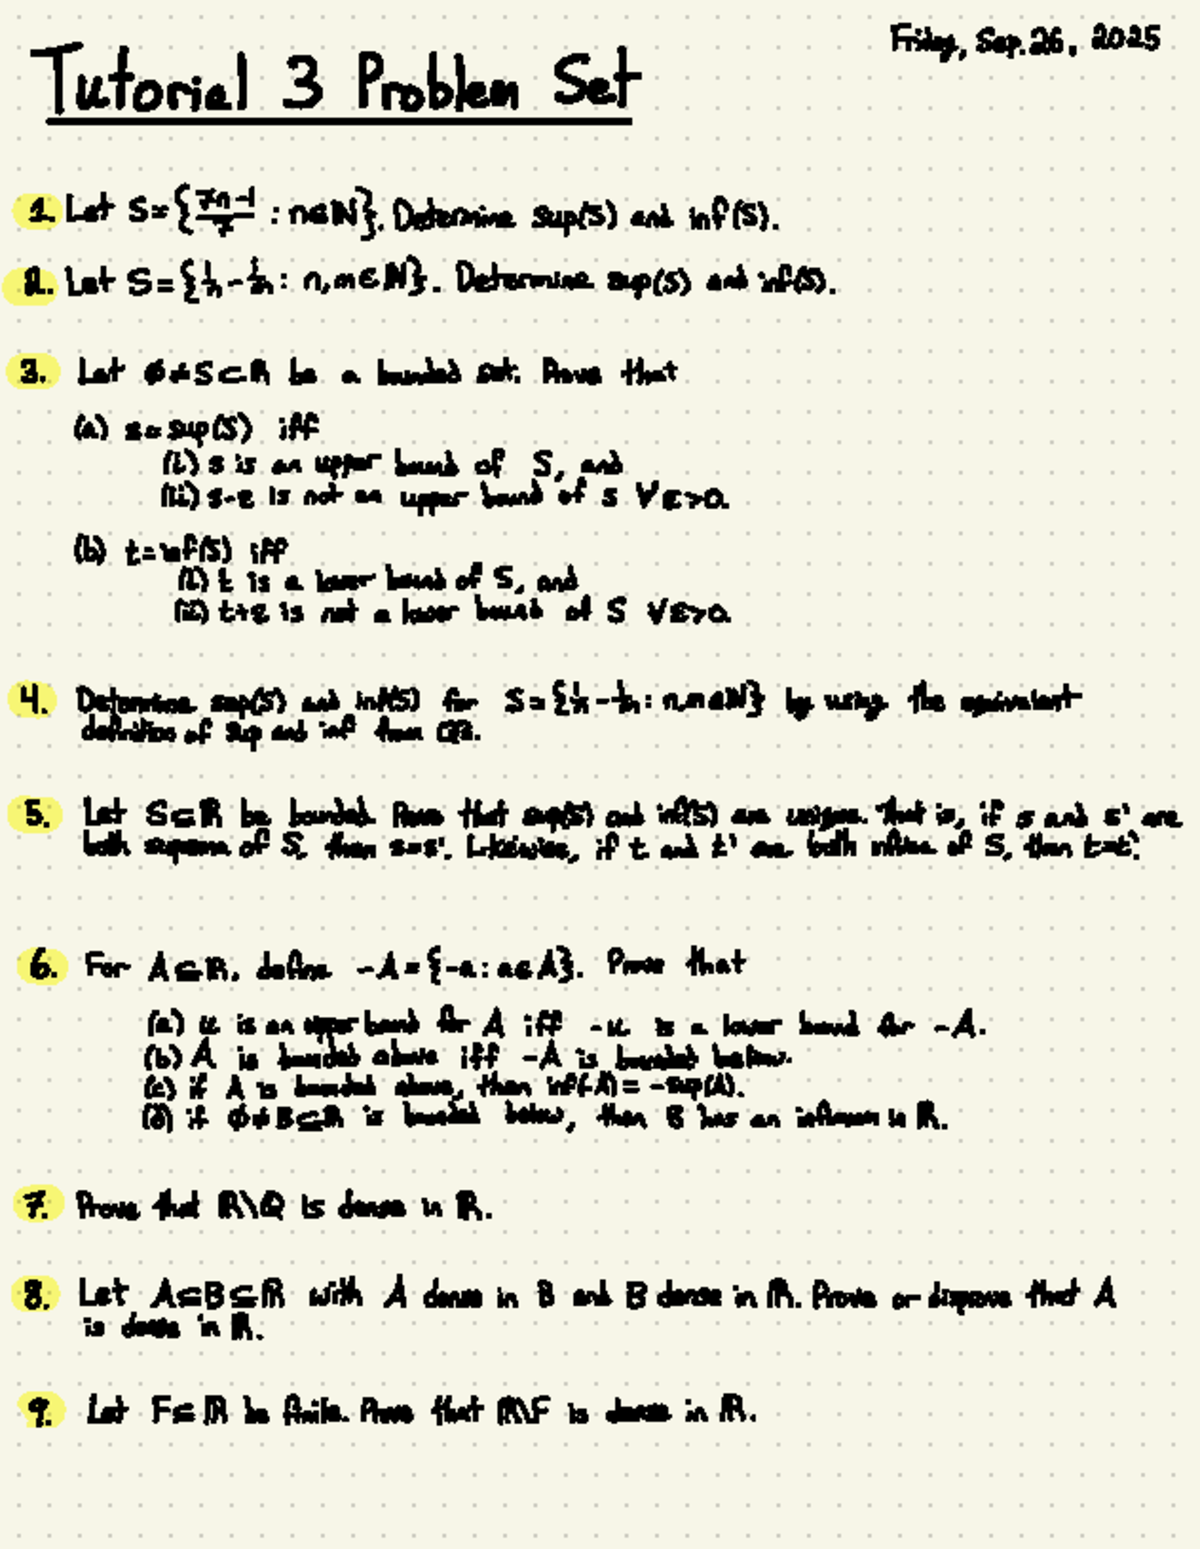 Friday, Sep. 26, 2025
Tutorial 3 Problem Set
1. Let S={(7n-1)/7 : n∈ℕ}. Determine sup(S) and inf(S).
2. Let S={1/n - 1/m : n,m∈ℕ}. Determine sup(S) and inf(S).
3. Let ∅≠S⊂ℝ be a bounded set. Prove that
(a) s=sup(S) iff
(i) s is an upper bound of S, and
(ii) s-ε is not an upper bound of S ∀ε>0.
(b) t=inf(S) iff
(i) t is a lower bound of S, and
(ii) t+ε is not a lower bound of S ∀ε>0.
4. Determine sup(S) and inf(S) for S={1/n - 1/m : n,m∈ℕ} by using the equivalent
definition of sup and inf from Q3.
5. Let S⊆ℝ be bounded. Prove that sup(S) and inf(S) are unique. That is, if s and s' are
both suprema of S, then s=s'. Likewise, if t and t' are both infima of S, then t=t'.
6. For A⊆ℝ, define -A={-a : a∈A}. Prove that
(a) u is an upper bound for A iff -u is a lower bound for -A.
(b) A is bounded above iff -A is bounded below.
(c) if A is bounded above, then inf(-A) = -sup(A).
(d) if ∅≠B⊆ℝ is bounded below, then B has an infimum in ℝ.
7. Prove that ℝ\ℚ is dense in ℝ.
8. Let A⊆B⊆ℝ with A dense in B and B dense in ℝ. Prove or disprove that A
is dense in ℝ.
9. Let F⊆ℝ be finite. Prove that ℝ\F is dense in ℝ.